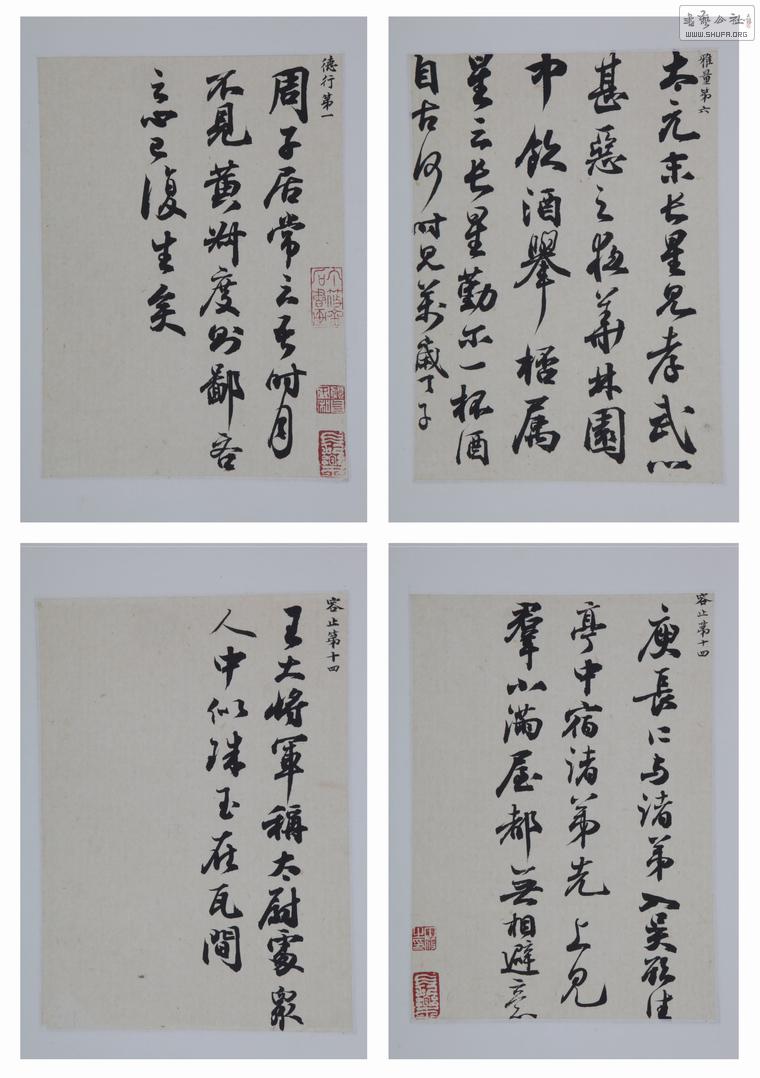 德行第一
周子居常云吾时月
不見黄叔度则鄙吝
之心已復生矣
書藝公社
WWW.SHUFA.ORG
雅量第六
太元末长星见孝武心
甚惡之夜華林園
中飲酒舉桮属
星云长星勸尔一杯酒
自古何时见萬歲天子
容止第十四
王大将軍稱太尉處衆
人中似珠玉在瓦間
容止第十四
庾長仁与诸弟入吴欲住
亭中宿诸弟先上见
羣小满屋都無相避意